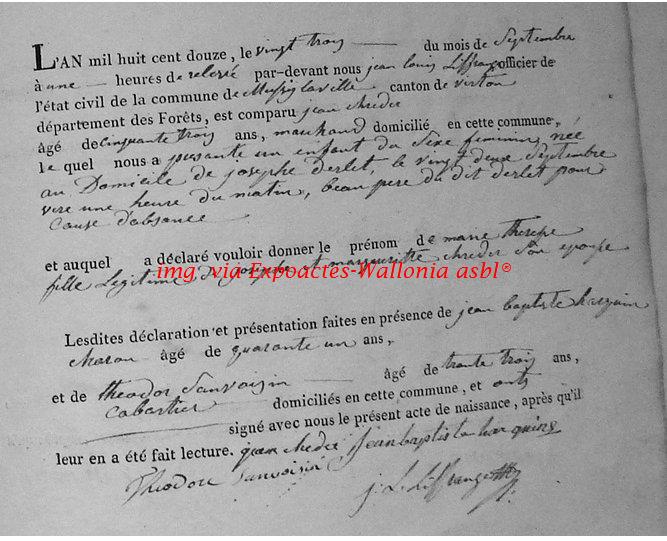 L'AN mil huit cent douze, le vingt trois du mois de Septembre
à une heures de relevé par-devant nous jean louis Liffrange officier de
l'état civil de la commune de Mussy laville canton de virton
département des Forêts, est comparu jean
âgé de cinquante trois ans, marchand domicilié en cette commune,
le quel nous a présanté un enfant du Sexe feminin, née
au Domicile de josephe derlet, le vingt deux Septembre
vere une heure du matin, beau pere du dit derlet pour
cause d'absance
et auquel a déclaré vouloir donner le prénom de marie therese
img. via Expoactes-Wallonia asbl®
fille Legitime de josephe et margueritte son epouse
Lesdites déclaration et présentation faites en présence de jean baptiste
âgé de quarante un ans,
et de theodor Sanvoisin âgé de trante trois ans,
cabartier domiciliés en cette commune, et onts
signé avec nous le présent acte de naissance, après qu'il
leur en a été fait lecture. jean jean baptiste
Theodore Sanvoisin j. L. Liffrange